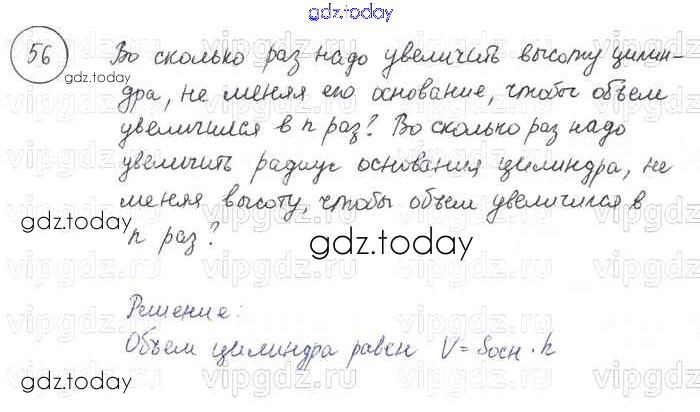 gdz.today
56 Во сколько раз надо увеличить высоту цилин-
gdz.today
дра, не меняя его основание, чтобы объем
увеличился в n раз? Во сколько раз надо
увеличить радиус основания цилиндра, не
меняя высоту, чтобы объем увеличился в
gdz.today
n раз?
gdz.today
Решение:
Объем цилиндра равен V = Sосн · h
gdz.today
gdz.today
vipgdz.ru